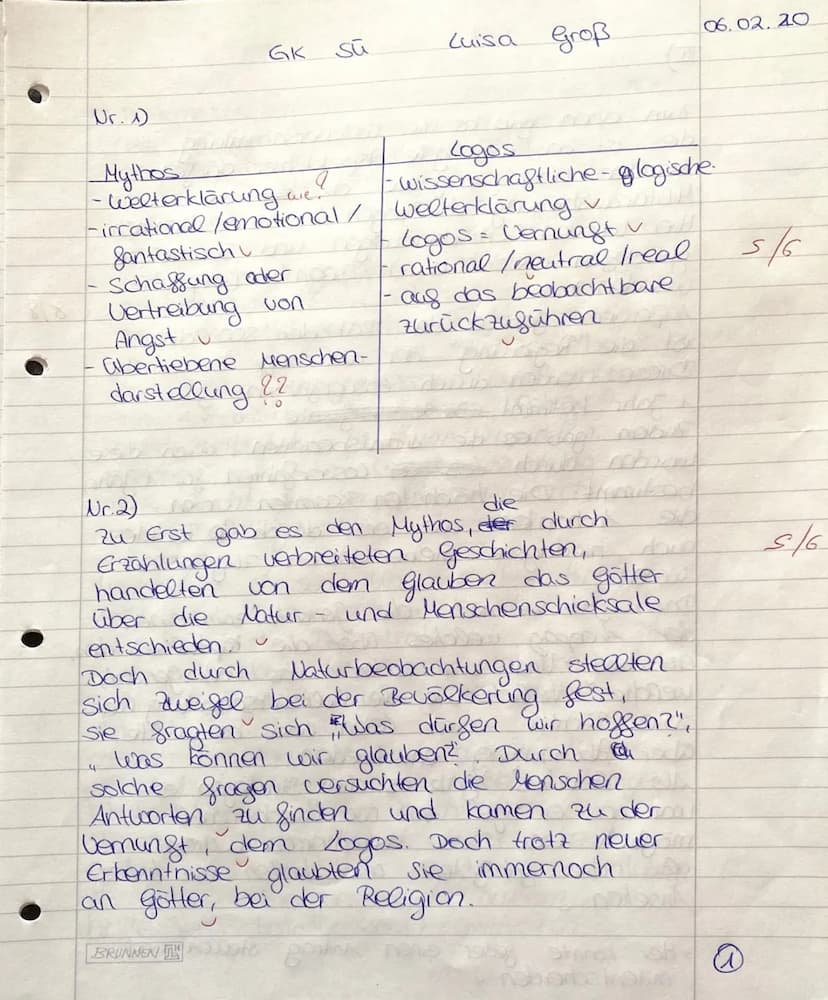 06.02.20
GK SÜ Luisa Groß
Nr. 1)
Mythos
- Welterklärung wie?
- irrational /emotional /
fantastisch
- Schaffung oder
Vertreibung von
Angst
- Übertiebene Menschen-
darstellung ??
Logos
- wissenschaftliche - logische
Welterklärung
- Logos = Vernunft
- rational /neutral /real
- auf das beobachtbare
zurückzuführen
5/6
Nr. 2)
Zu Erst gab es den Mythos, die durch
Erzählungen verbreiteten Geschichten,
handelten von dem Glauben das Götter
über die Natur - und Menschenschicksale
entschieden.
Doch durch Naturbeobachtungen stellten
sich Zweifel bei der Bevölkerung fest,
sie fragten sich „Was dürfen wir hoffen?",
„Was können wir glauben?". Durch
solche Fragen versuchten die Menschen
Antworten zu finden und kamen zu der
Vernunft, dem Logos. Doch trotz neuer
Erkenntnisse glaubten sie immernoch
an Götter, bei der Religion.
5/6
BRUNNEN
1